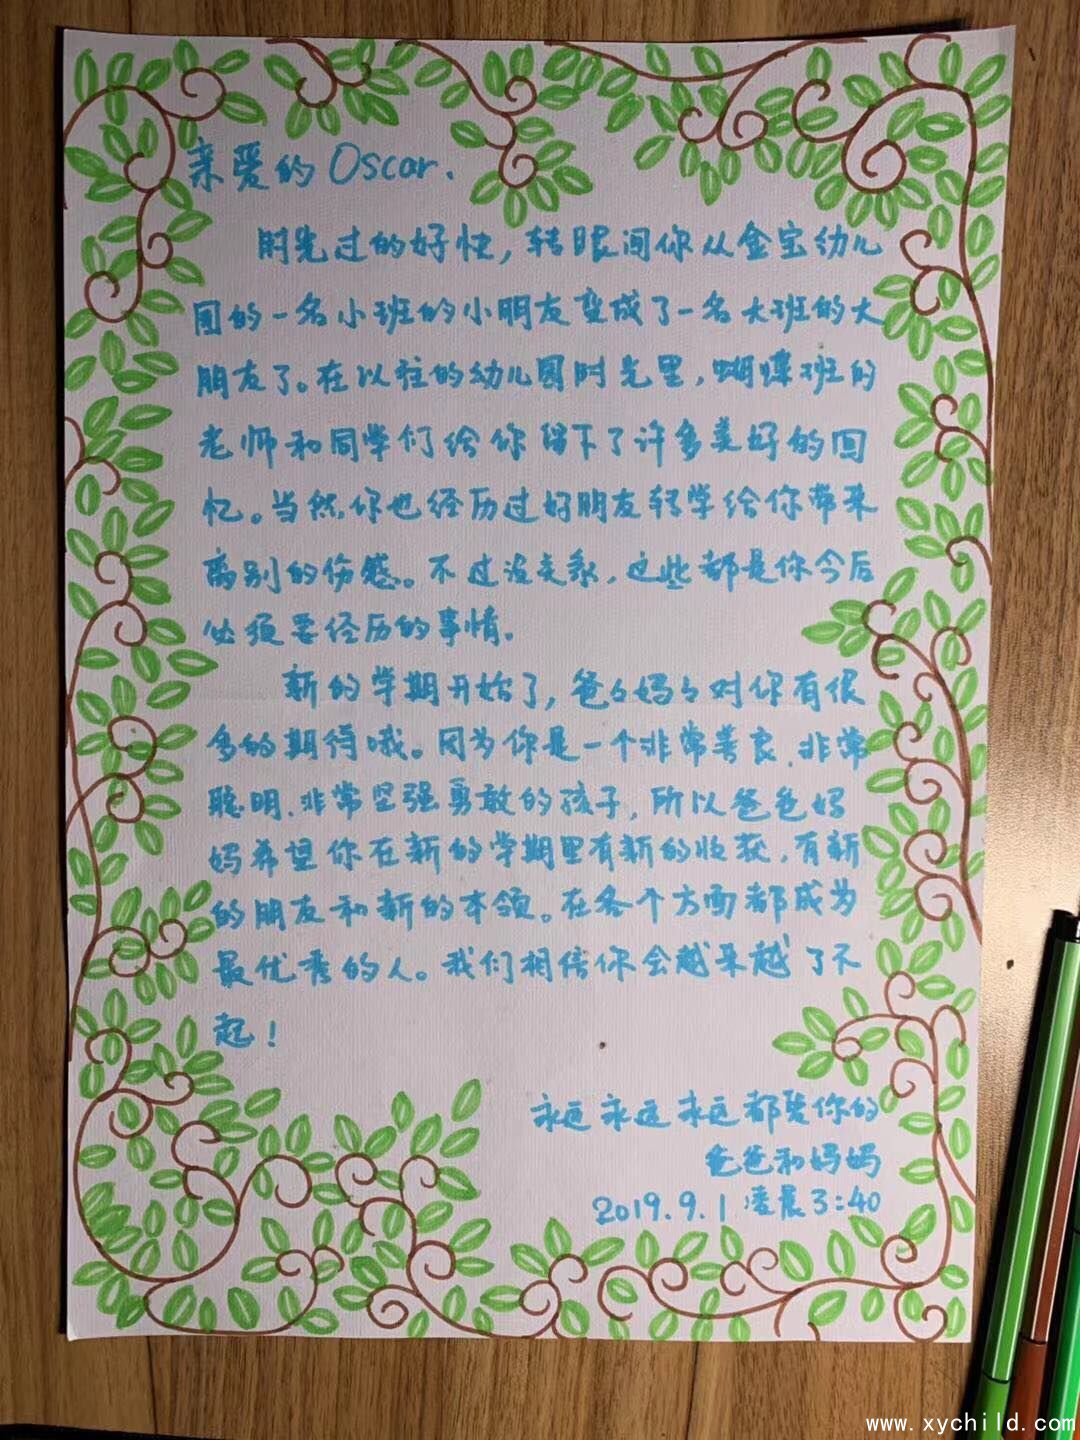 亲爱的Oscar.
时光过的好快，转眼间你从金宝幼儿
园的一名小班的小朋友变成了一名大班的大
朋友了。在以往的幼儿园时光里，蝴蝶班的
老师和同学们给你留下了许多美好的回
忆。当然，你也经历过好朋友转学给你带来
离别的伤感。不过没关系，这些都是你今后
必须要经历的事情。
新的学期开始了，爸々妈々对你有很
多的期待哦。因为你是一个非常善良、非常
聪明、非常坚强勇敢的孩子，所以爸爸妈
妈希望你在新的学期里有新的收获，有新
的朋友和新的本领。在各个方面都成为
最优秀的人。我们相信你会越来越了不
起！
永远永远永远都爱你的
爸爸和妈妈
2019.9.1 凌晨3:40
www.xychild.com